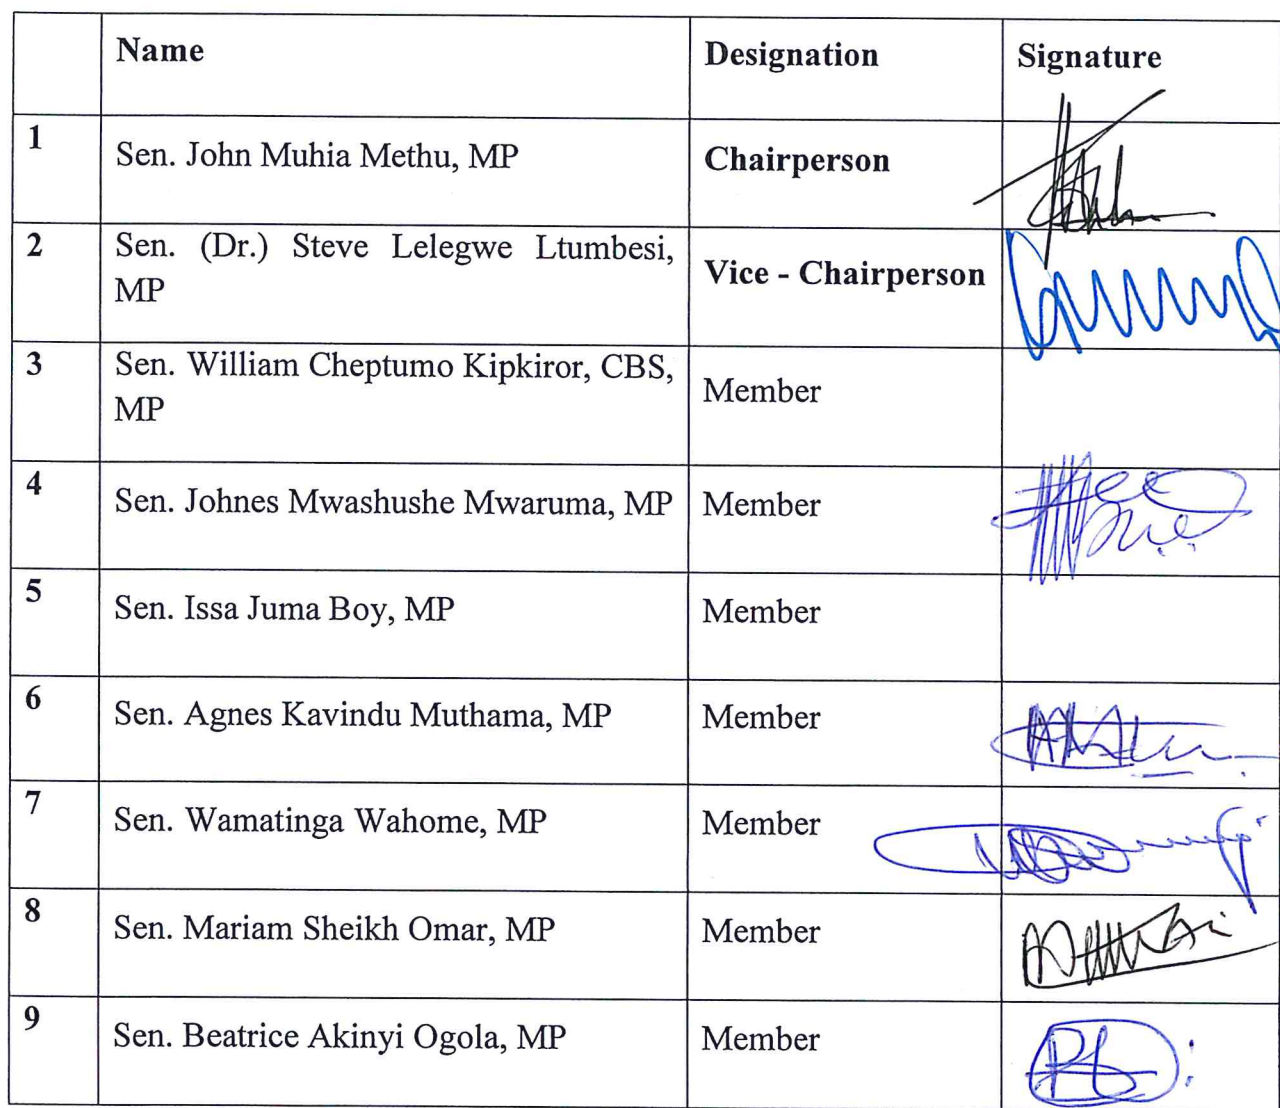 Name Designation Signature
1 Sen. John Muhia Methu, MP Chairperson
2 Sen. (Dr.) Steve Lelegwe Ltumbesi, Vice - Chairperson
MP
3 Sen. William Cheptumo Kipkiror, CBS, Member
MP
4 Sen. Johnes Mwashushe Mwaruma, MP Member
5 Sen. Issa Juma Boy, MP Member
6 Sen. Agnes Kavindu Muthama, MP Member
7 Sen. Wamatinga Wahome, MP Member
8 Sen. Mariam Sheikh Omar, MP Member
9 Sen. Beatrice Akinyi Ogola, MP Member